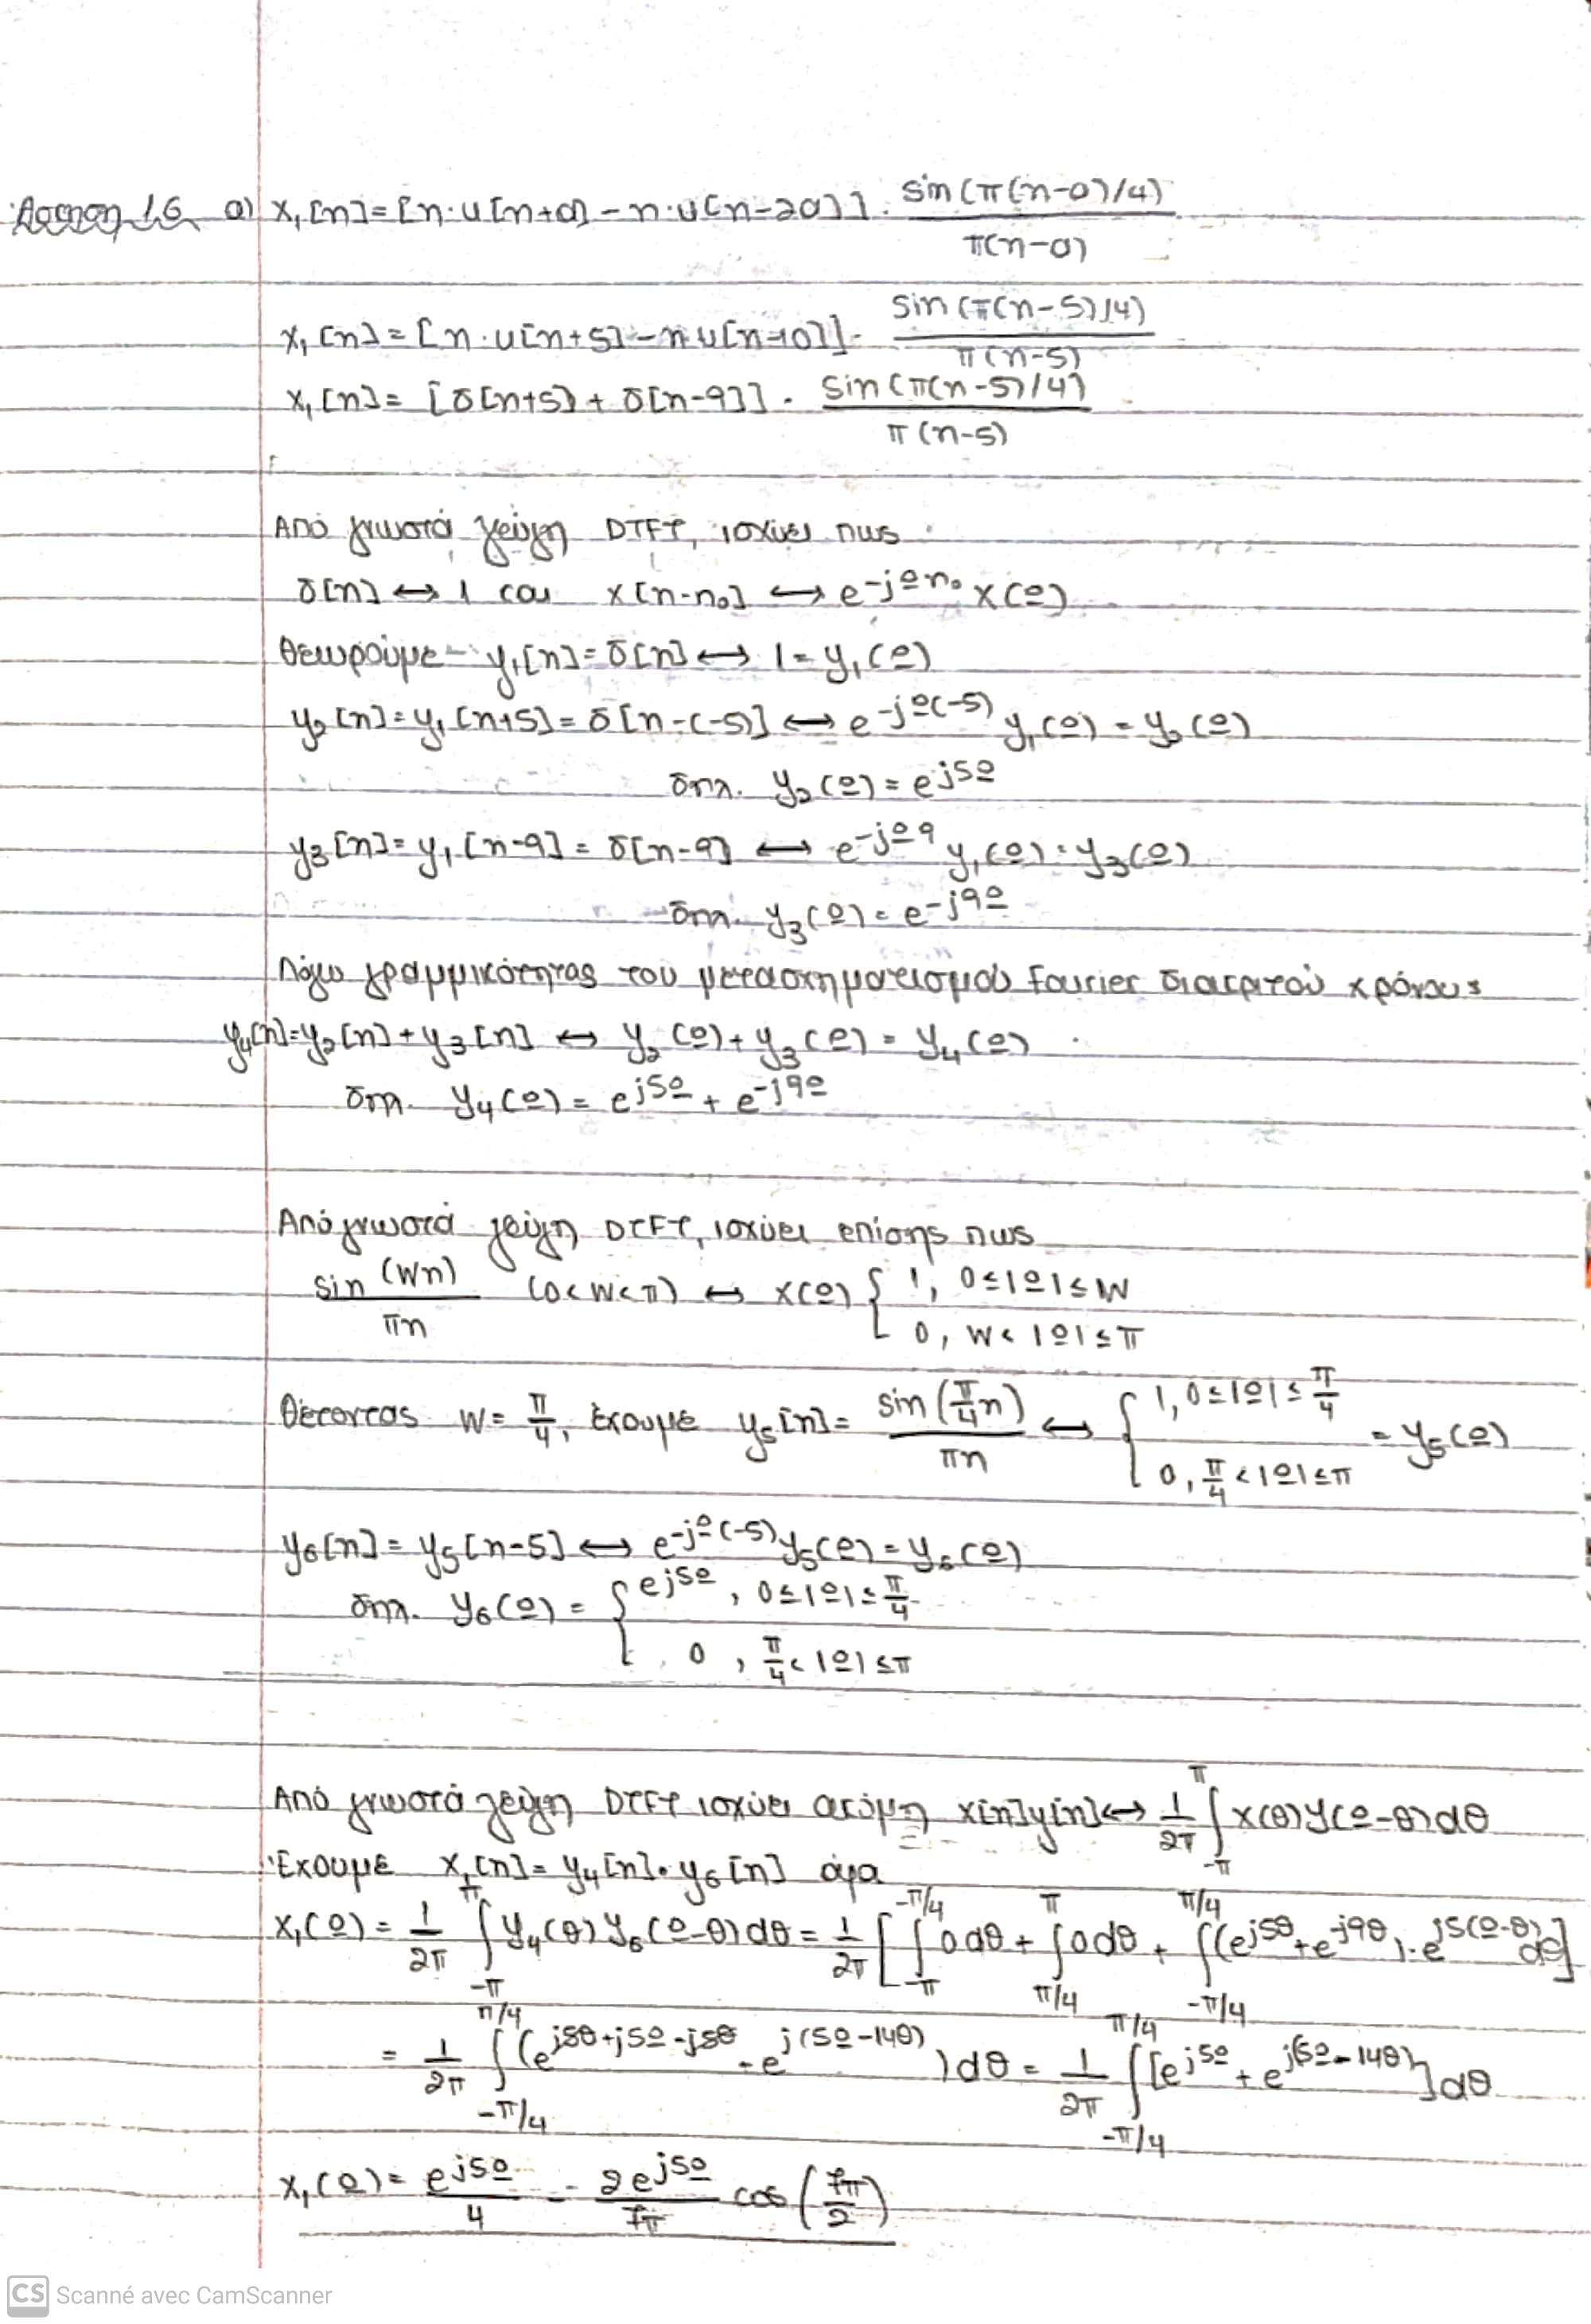 Άσκηση 1.6 α) x₁[n]=[n·u[n+α]-n·u[n-2α]]· sin(π(n-α)/4) / π(n-α)
x₁[n]=[n·u[n+5]-n·u[n-10]]· sin(π(n-5)/4) / π(n-5)
x₁[n]= [δ[n+5]+δ[n-9]]· sin(π(n-5)/4) / π(n-5)
Από γνωστά ζεύγη DTFT, ισχύει πως
δ[n] ↔ 1 και x[n-n₀] ↔ e^{-jΩn₀} X(Ω)
Θεωρούμε y₁[n]=δ[n] ↔ 1=Y₁(Ω)
y₂[n]=y₁[n+5]=δ[n-(-5)] ↔ e^{-jΩ(-5)} Y₁(Ω)=Y₂(Ω)
δηλ. Y₂(Ω)=e^{j5Ω}
y₃[n]=y₁[n-9]=δ[n-9] ↔ e^{-jΩ9} Y₁(Ω)=Y₃(Ω)
δηλ. Y₃(Ω)=e^{-j9Ω}
Λόγω γραμμικότητας του μετασχηματισμού Fourier διακριτού χρόνου:
y₄[n]=y₂[n]+y₃[n] ↔ Y₂(Ω)+Y₃(Ω)=Y₄(Ω)
δηλ. Y₄(Ω)=e^{j5Ω}+e^{-j9Ω}
Από γνωστά ζεύγη DTFT, ισχύει επίσης πως
sin(Wn) / πn (0<W<π) ↔ X(Ω) { 1, 0≤|Ω|≤W
0, W<|Ω|≤π
Θέτοντας W= π/4, έχουμε y₅[n]= sin(π/4 n) / πn ↔ { 1, 0≤|Ω|≤ π/4 = Y₅(Ω)
0, π/4 <|Ω|≤π
y₆[n]=y₅[n-5] ↔ e^{-jΩ(-5)} Y₅(Ω)=Y₆(Ω)
δηλ. Y₆(Ω)= { e^{j5Ω}, 0≤|Ω|≤ π/4
0, π/4 <|Ω|≤π
Από γνωστά ζεύγη DTFT ισχύει ακόμη x[n]y[n] ↔ 1/2π ∫_{-π}^{π} X(θ)Y(Ω-θ)dθ
Έχουμε x₁[n]=y₄[n]·y₆[n] άρα
X₁(Ω)= 1/2π ∫_{-π}^{π} Y₄(θ)Y₆(Ω-θ)dθ = 1/2π [∫_{-π}^{-π/4} 0dθ + ∫_{π/4}^{π} 0dθ + ∫_{-π/4}^{π/4} (e^{j5θ}+e^{-j9θ})·e^{j5(Ω-θ)} dθ]
= 1/2π ∫_{-π/4}^{π/4} (e^{j5θ+j5Ω-j5θ}+e^{j(5Ω-14θ)})dθ = 1/2π ∫_{-π/4}^{π/4} [e^{j5Ω}+e^{j(5Ω-14θ)}]dθ
X₁(Ω)= e^{j5Ω}/4 - 2e^{j5Ω}/7π cos(7π/2)
CS Scanné avec CamScanner